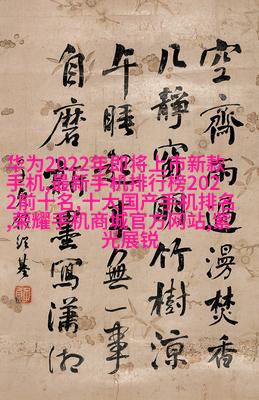 空齋雨漫焚香
几靜窗明竹樹涼
午睡無一事
自磨墨寫瀟湘
华为2022年即将上市新款
手机,最新手机排行榜202
2前十名,十大国产手机排名
,荣耀手机商城官方网站,紫
光展锐